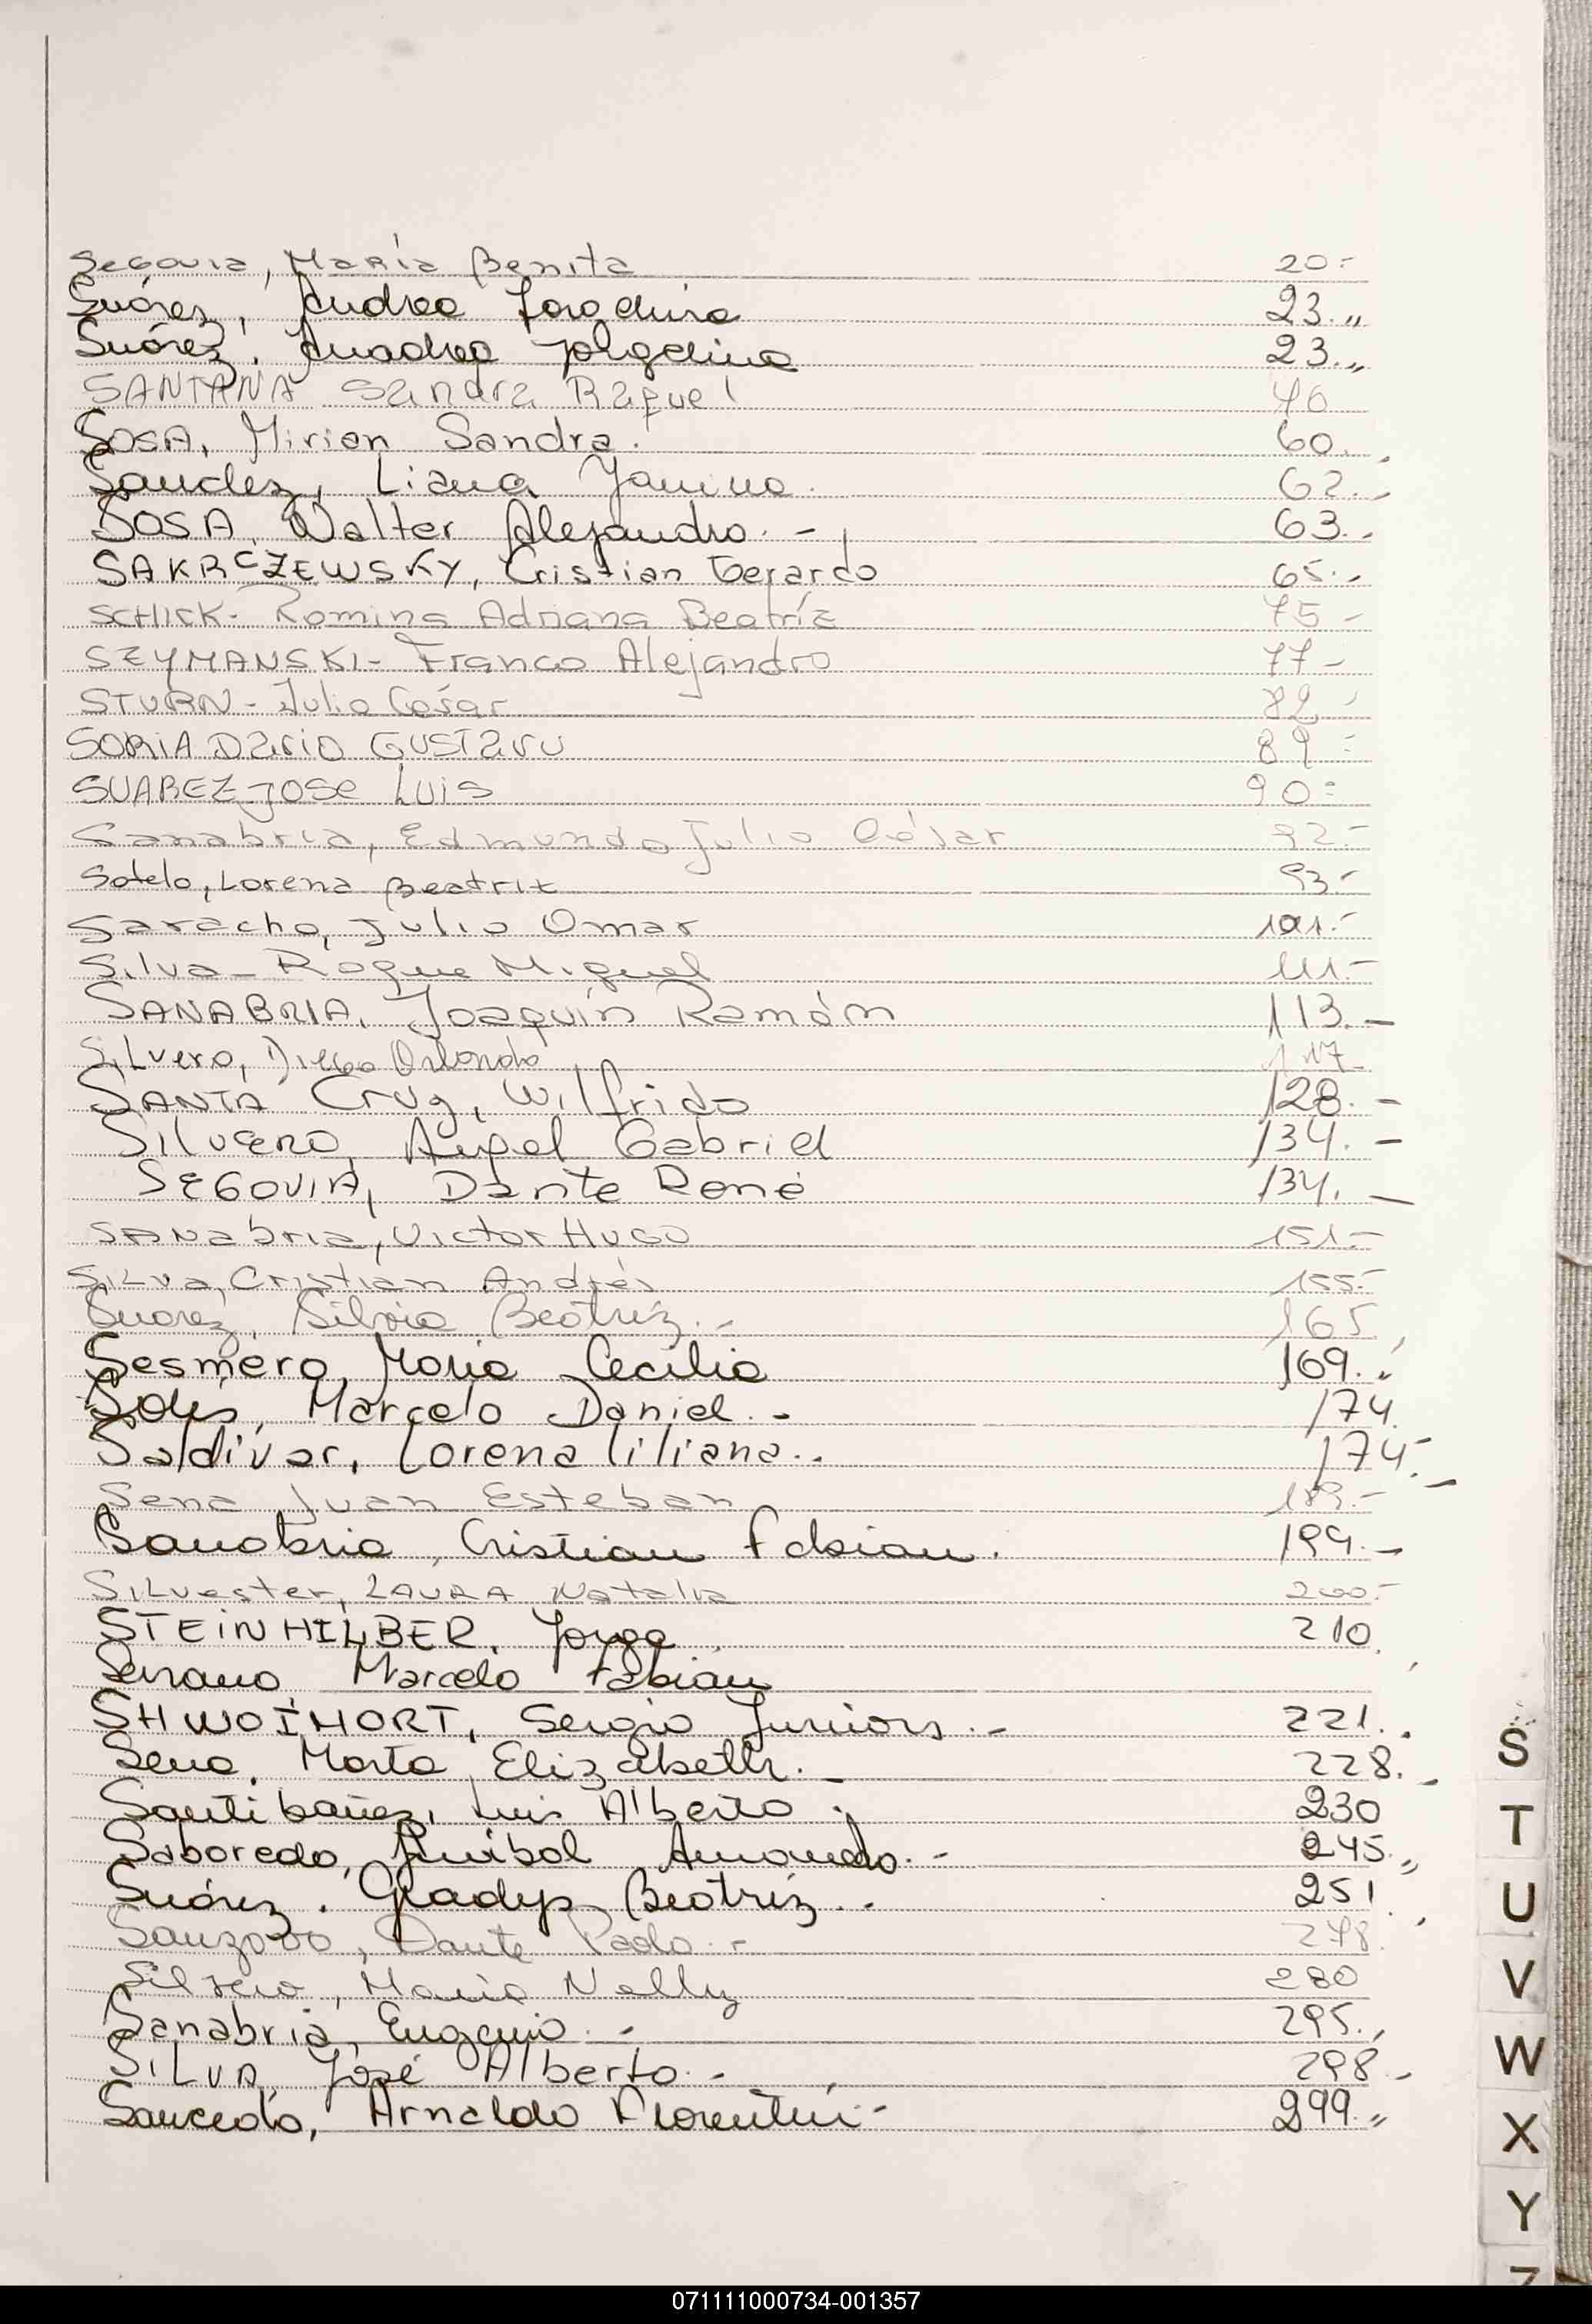 Segovia, María Benita 20.-
Suárez, Andrea Jorgelina 23.,,
Suárez, Anadrea Jorgelina 23.,,
SANTANA Sandra Raquel 40
SOSA, Mirian Sandra. 60.
Sanchez, Liana Yanina. 62.-
SOSA, Walter Alejandro.- 63.-
SAKRCZEWSKY, Cristian Gerardo 65.-
SCHICK- Romina Adriana Beatríz 75-
SZYMANSKI- Franco Alejandro 77-
STURN- Julio César 82-
SORIA Dario GUSTavo 89=
SUAREZ JOSe Luis 90=
Sanabria, Edmundo Julio César 92.-
Sotelo, Lorena Beatriz 93-
Saracho, Julio Omar 101.-
Silva- Roque Miguel 111.-
SANABRIA, Joaquín Ramón 113.-
SiLvero, Diego Orlando 117-
SANTA Cruz, Wilfrido 128.-
SilvERO, Angel Gabriel 134.-
SEGOVIA, Dante René 134.-
SANabria, Victor HUGO 151.-
SiLva, Cristian Andrés 155-
Suarez, Silvia Beatriz.- 165,
Sesmero, Maria Cecilia 169.-
Solís, Marcelo Daniel.- 174.
Saldívar, Lorena Liliana.. 174.-
Sena Juan Esteban 189.-
Sanabria, Cristian Fabian. 199.-
SiLvester, LAURA Natalia 200-
STEiNHILBER, Jorge 210,
Serrano Marcelo Fabián
SHWOIHORT, Sergio Juniors.- 221.
Sena, Marta Elizabeth.- 228.-
Santibañez, Luis Alberto. 230
Saboredo, Anibal Armando.- 245.,,
Suárez. Gladys Beatríz.- 251,
Dante Paolo.- 278.
Silvero, Maria Nelly 280
Sanabria, Eugenio.- 295.,
SiLVA, José Alberto.- 298.-
Saucedo, Arnaldo Florentin.- 299.,,
S
T
U
V
W
X
Y
Z
071111000734-001357